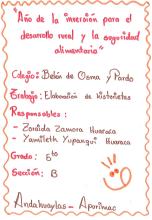 "Año de la inversión para el
desarrollo rural y la seguridad
alimentaria"
Colegio: Belén de Osma y Pardo
Trabajo: Elaboración de historietas
Responsables:
- Zoraida Zamora Huaraca
- Yamileth Yupanqui Huaraca
Grado: 5to
Sección: B
Andahuaylas - Apurímac